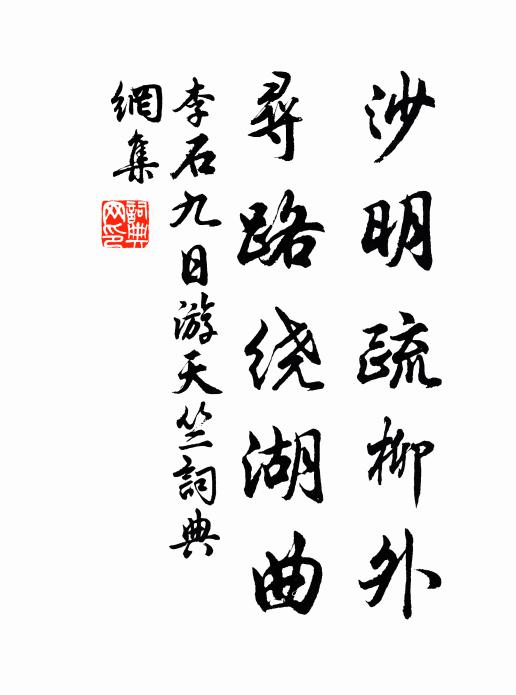 沙明疏柳外
尋路绕湖曲
李石九日游天竺詞典
網集
詞典
网印